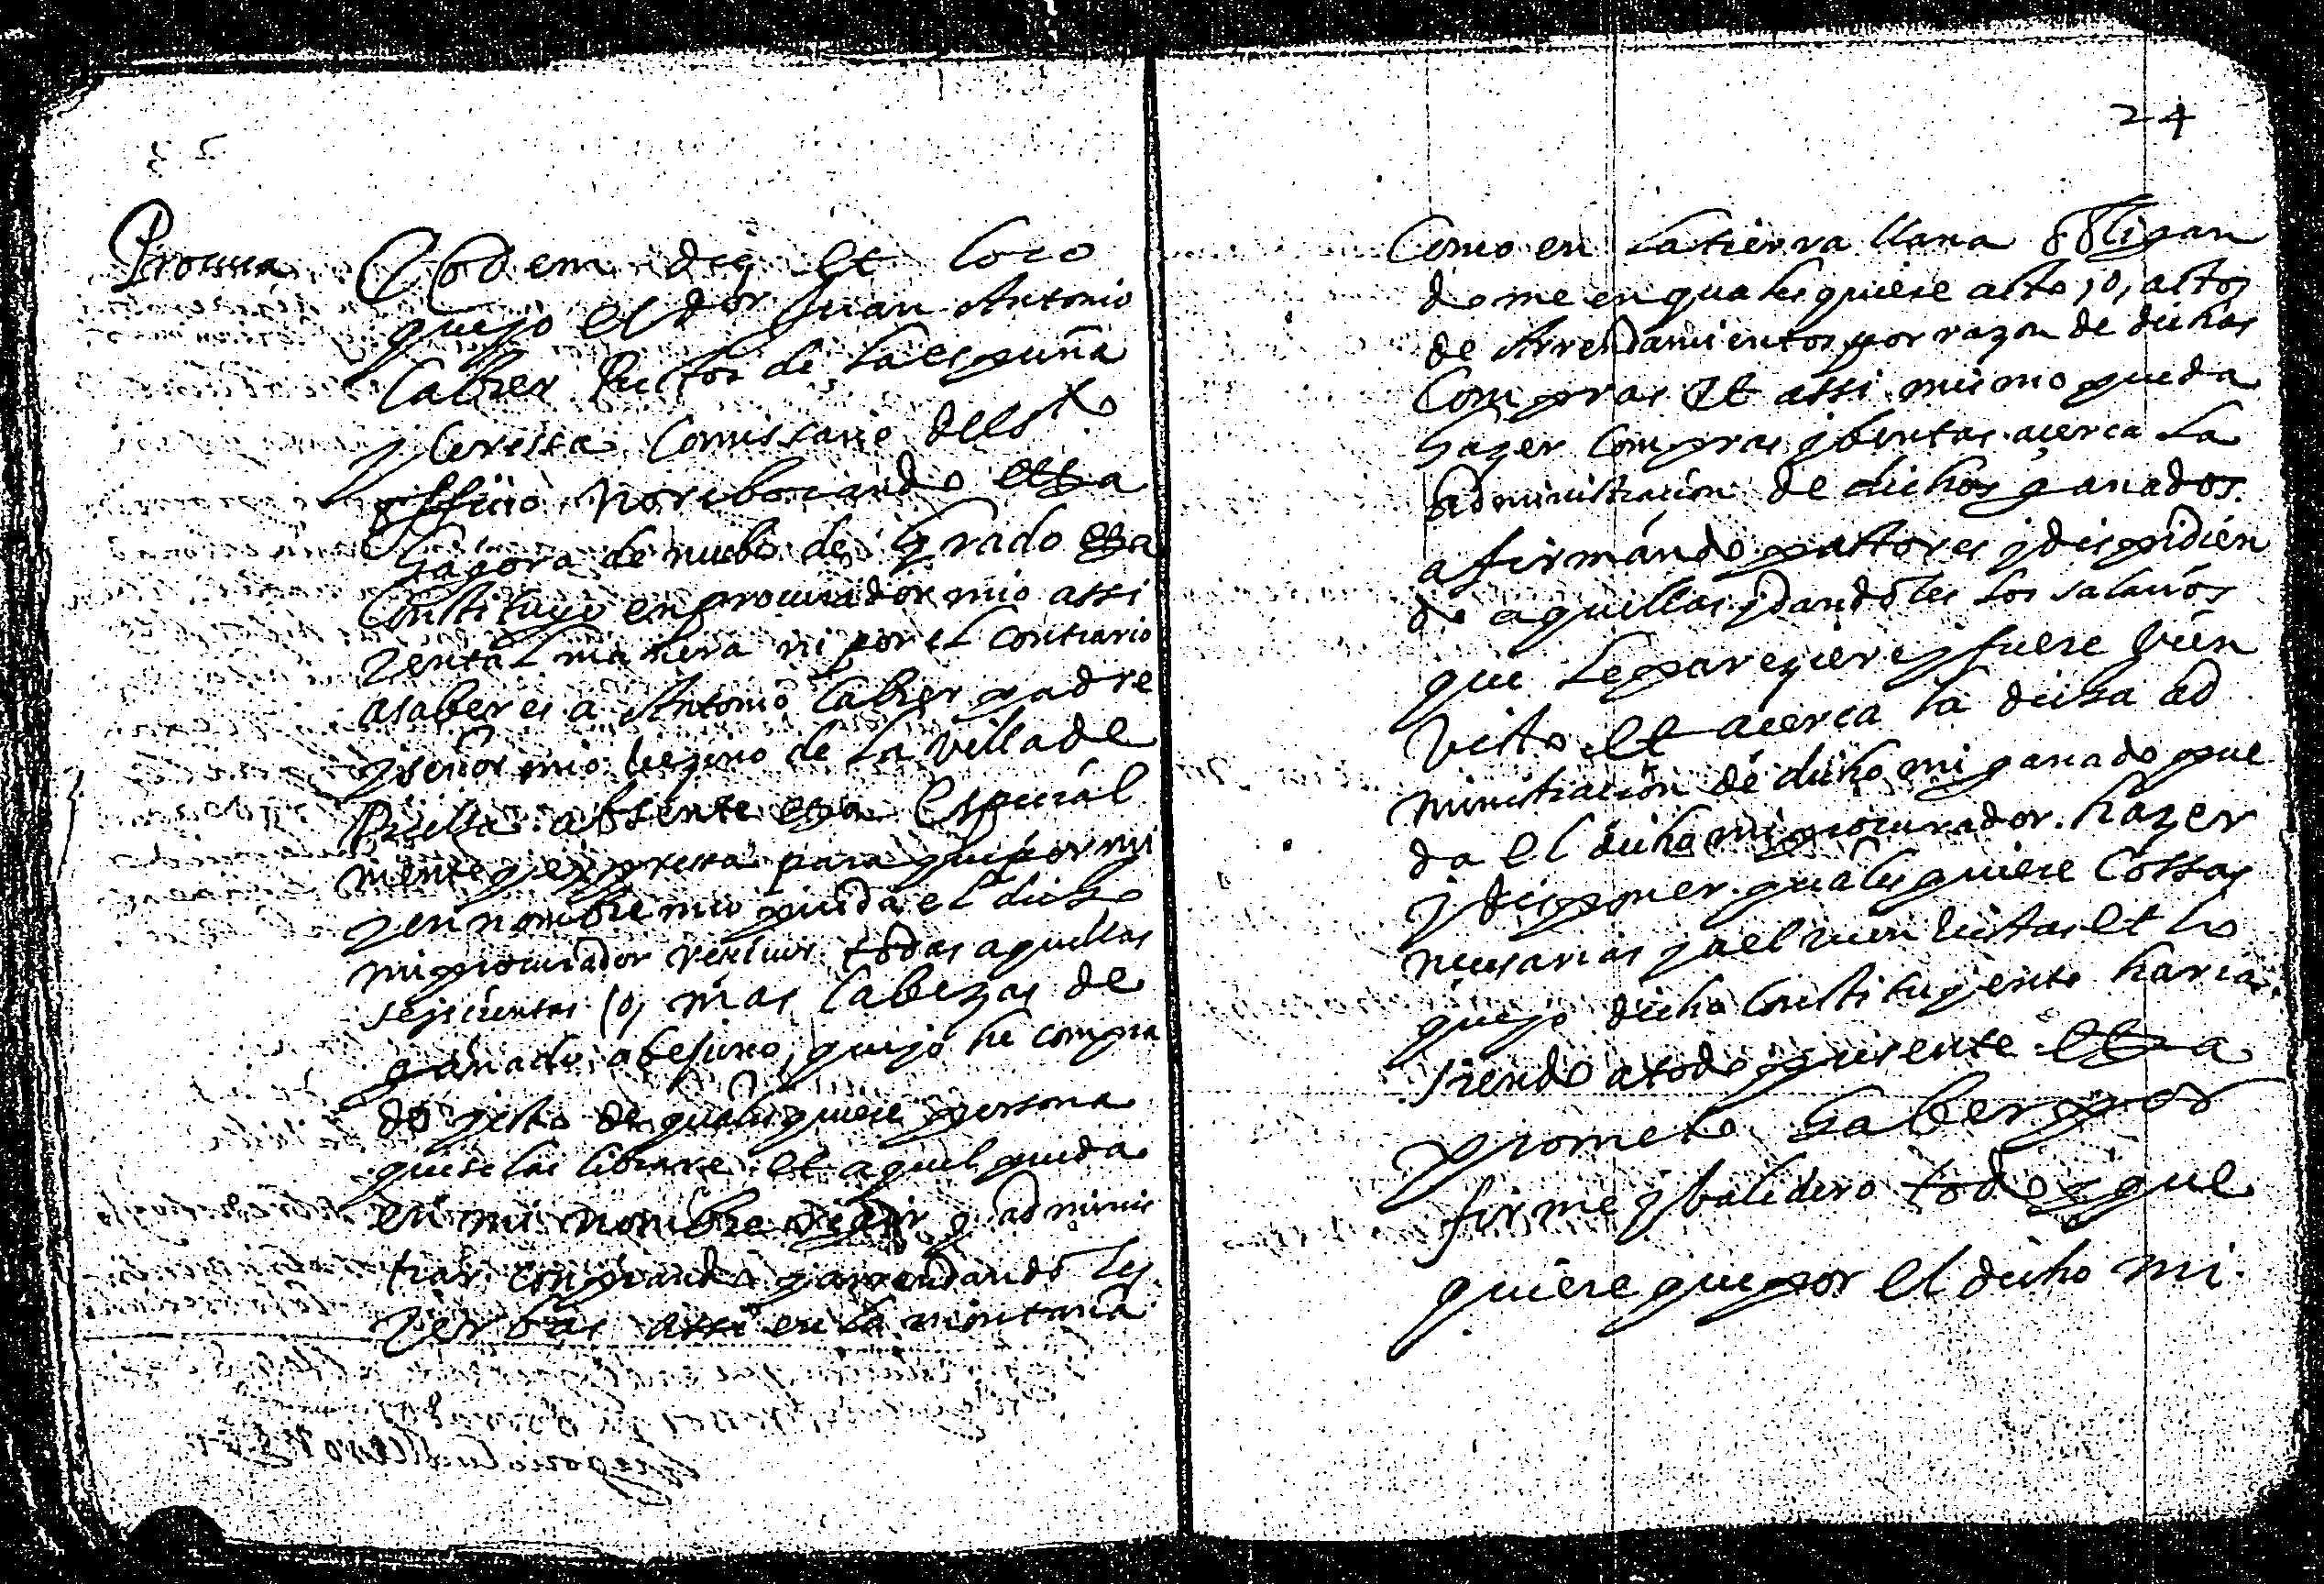 24
Procura
Eodem die et loco
que yo el dor Juan Antonio
Cabrer Rector de la espuña
y Ceressa Comissario del sto
officio no rebocando etca
hagora de nuebo de grado etca
Constituyo en procurador mio assi
y en tal manera ni por el contrario
asaber es a Antonio Cabrer padre
y señor mio bezino de la villa de
absente etca Especial
mente y expressa para que por mi
y en nombre mio pueda el dicho
mi procurador recluir todas aquellas
seyscientas ,o, mas Cabezas de
ganado obejuno, que yo he compra
do y esto de qualesquiere persona
que se las librare et aquel pueda
en mi nombre regir y adminis
trar comprando y arrendando les
Yerbas assi en la montaña
Como en la tierra llana obligan
dome en qualesquiere acto ,o, actos
de Arrendamientos por razon de dichas
Compras et assi mismo pueda
hazer Compras y bentas acerca la
administracion de dichos ganados
afirmando pastores y despidien
do aquellos y dandoles los salarios
que le pareziere y fuere bien
visto et acerca la dicha ad
ministracion de dicho mi ganado pue
da el dicho mi procurador hazer
y disponer qualesquiere Cossas
necesarias y a el bien bistas et lo
que yo dicho Constituyente haria
siendo a todo presente etca
Y prometo haber por
firme y balidero todo y que
quiere que por el dicho mi